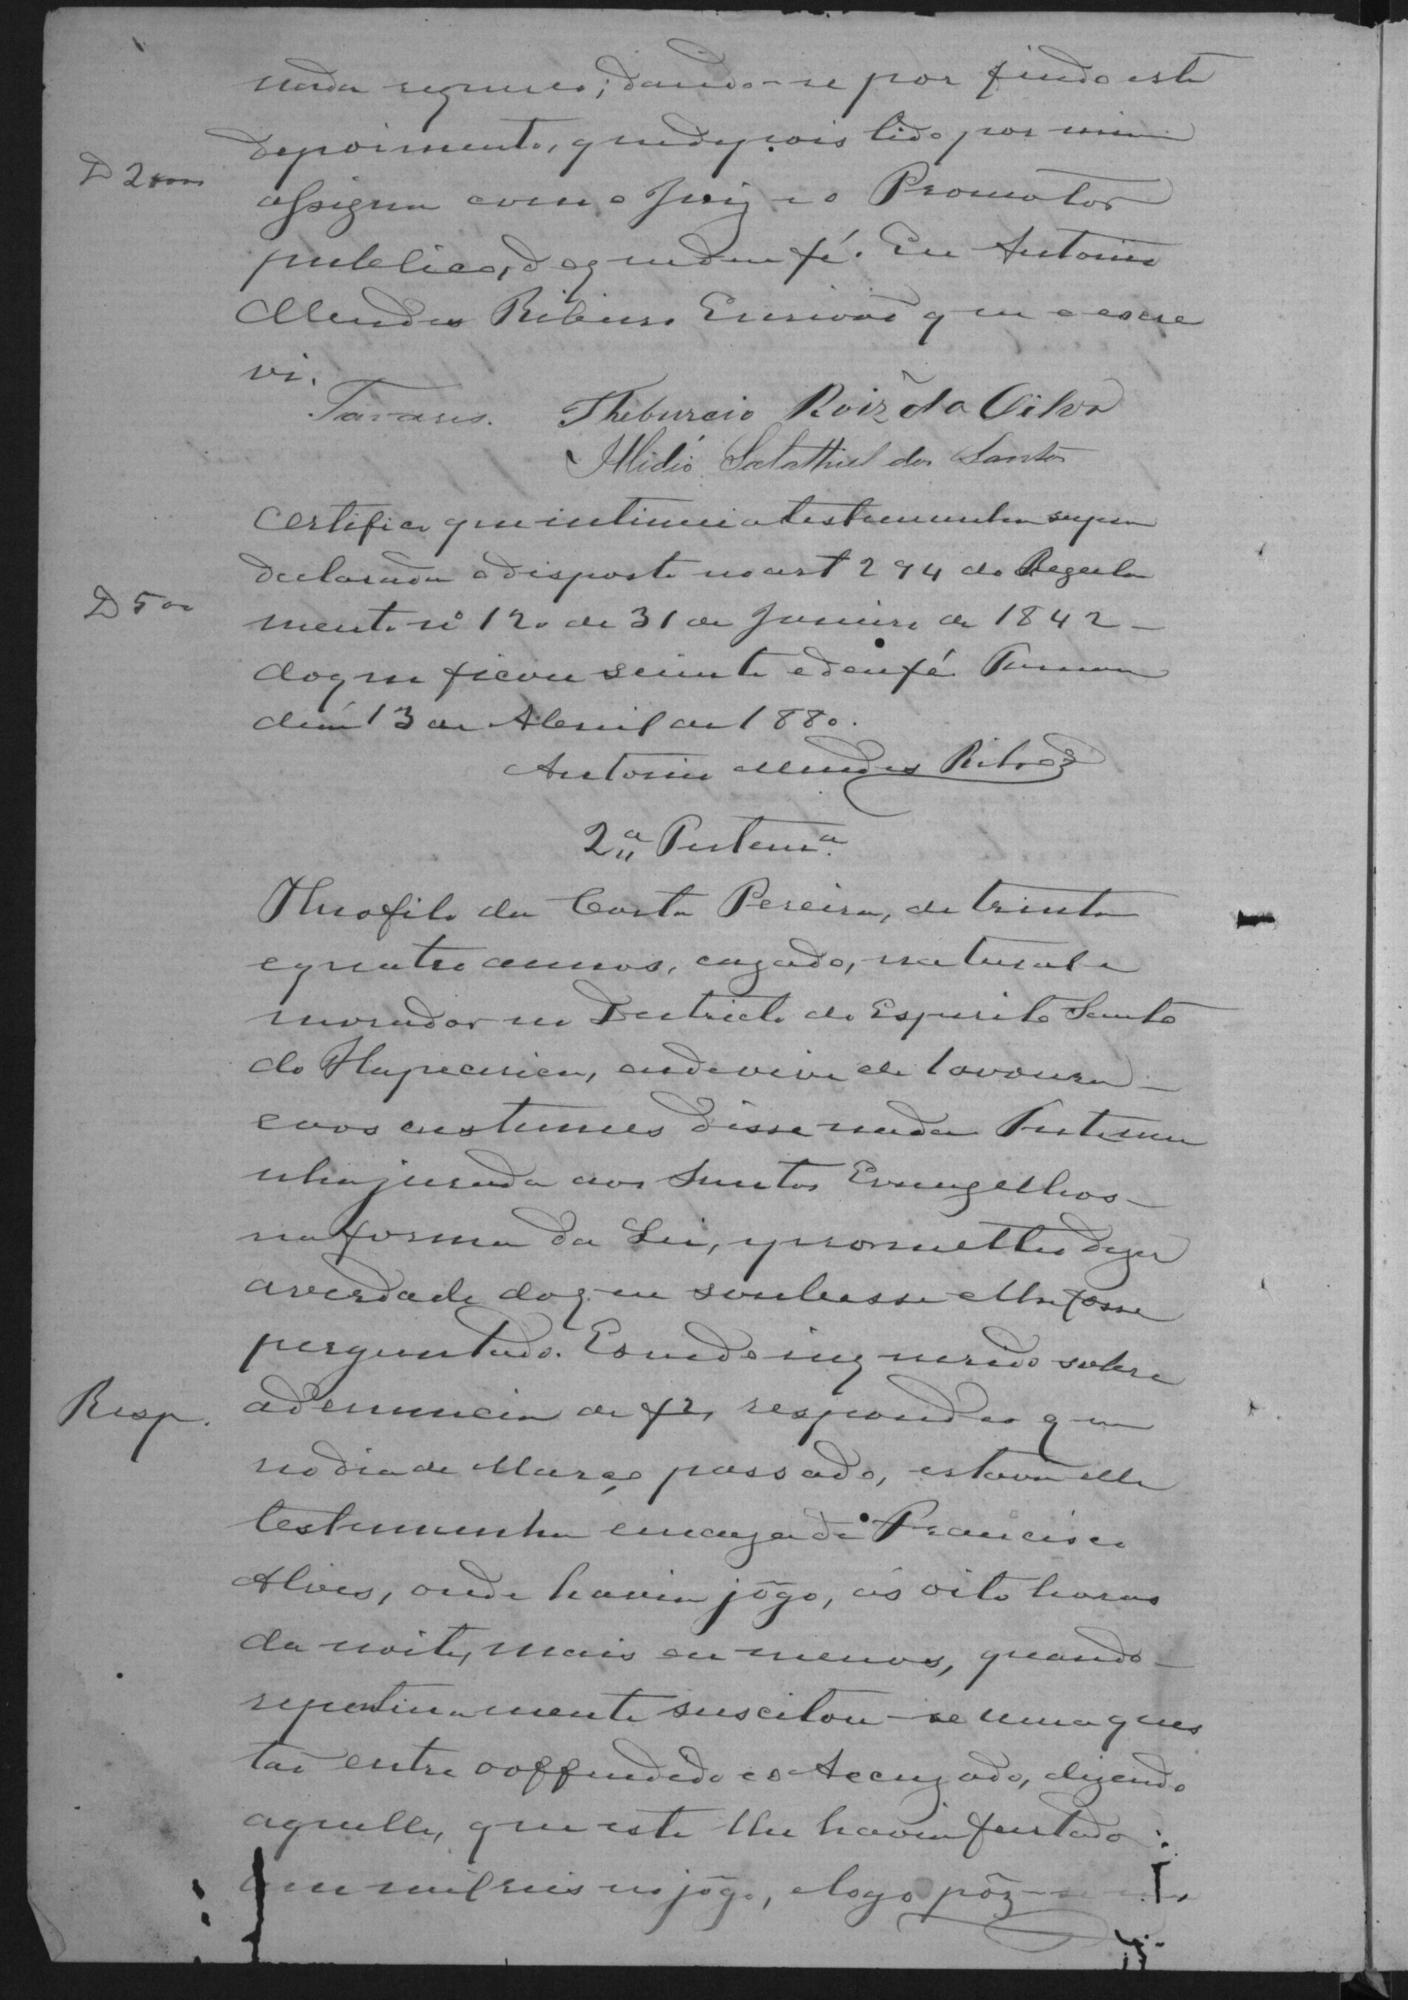 nada requereo; dando-se por findo este
depoimento, que depois lido por mim
D 2000
assigna com o Juiz e o Promotor
publico, do que dou fé. Eu Antonio
Mendes Ribeiro Escrivaõ que o escre
vi.
Tavares. Theburcio Roiz da Silva
Illidio Salathiel dos Santos
Certifico que intimei a testemunha supra
declarada o disposto no art 294 do Regula
D 500
mento nº 120 de 31 de Janeiro de 1842 -
do que ficou sciente e dou fé.
13 de Abril de 1880.
Antonio Mendes Ribrº
2ª Testemª
Theofilo da Costa Pereira, de trinta
e quatro annos, cazado, natural e
morador no Destricto do Espirito Santo
do Itapecerica, onde vive de lavoura -
e aos custumes disse nada Testemu
nha jurada aos Santos Evangelhos -
na forma da Lei, e prometteo dizer
a verdade do que soubesse e lhe fosse
perguntado. E sendo inquerido sobre
Resp.
a denuncia de f2, respondeo que
no dia de Março passado, estava elle
testemunha em caza de Francisco
Alves, onde havia jôgo, ás oito horas
da noite, mais ou menos, quando -
repentinamente suscitou-se uma ques
taõ entre o offendido e o Accuzado, dizendo
aquelle, que este lhe havia furtado
um mil reis no jôgo, e logo pôz-se